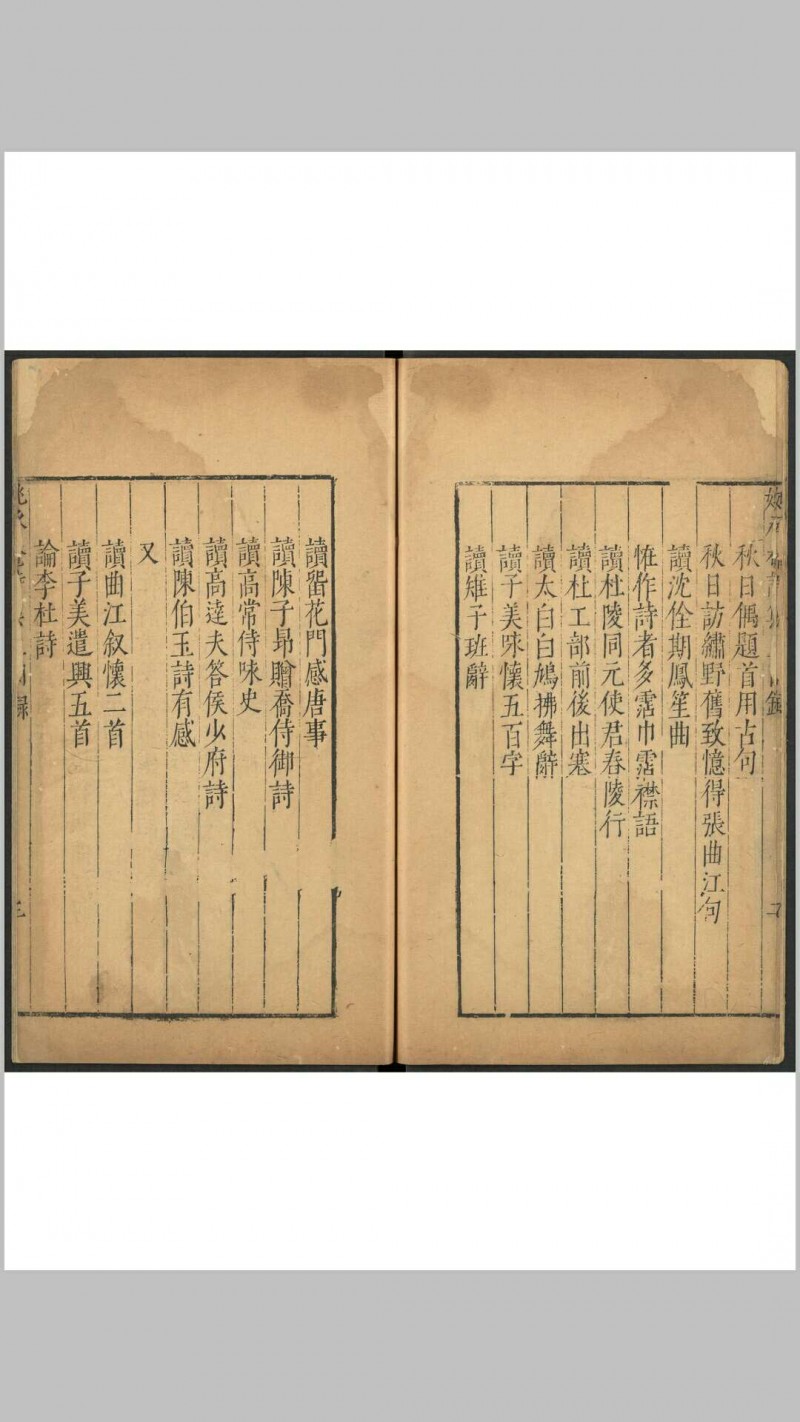 秋日偶題首用古句
秋日訪繡野舊致憶得張曲江句
讀沈佺期鳳笙曲
惟作詩者多霑巾霑襟語
讀杜陵同元使君舂陵行
讀杜工部前後出塞
讀太白白鳩拂舞辭
讀子美咏懷五百字
讀雉子班辭
讀畱花門感唐事
讀陳子昻贈喬侍御詩
讀高常侍咏史
讀高逹夫答侯少府詩
讀陳伯玉詩有感
又
讀曲江叙懷二首
讀子美遣興五首
論李杜詩